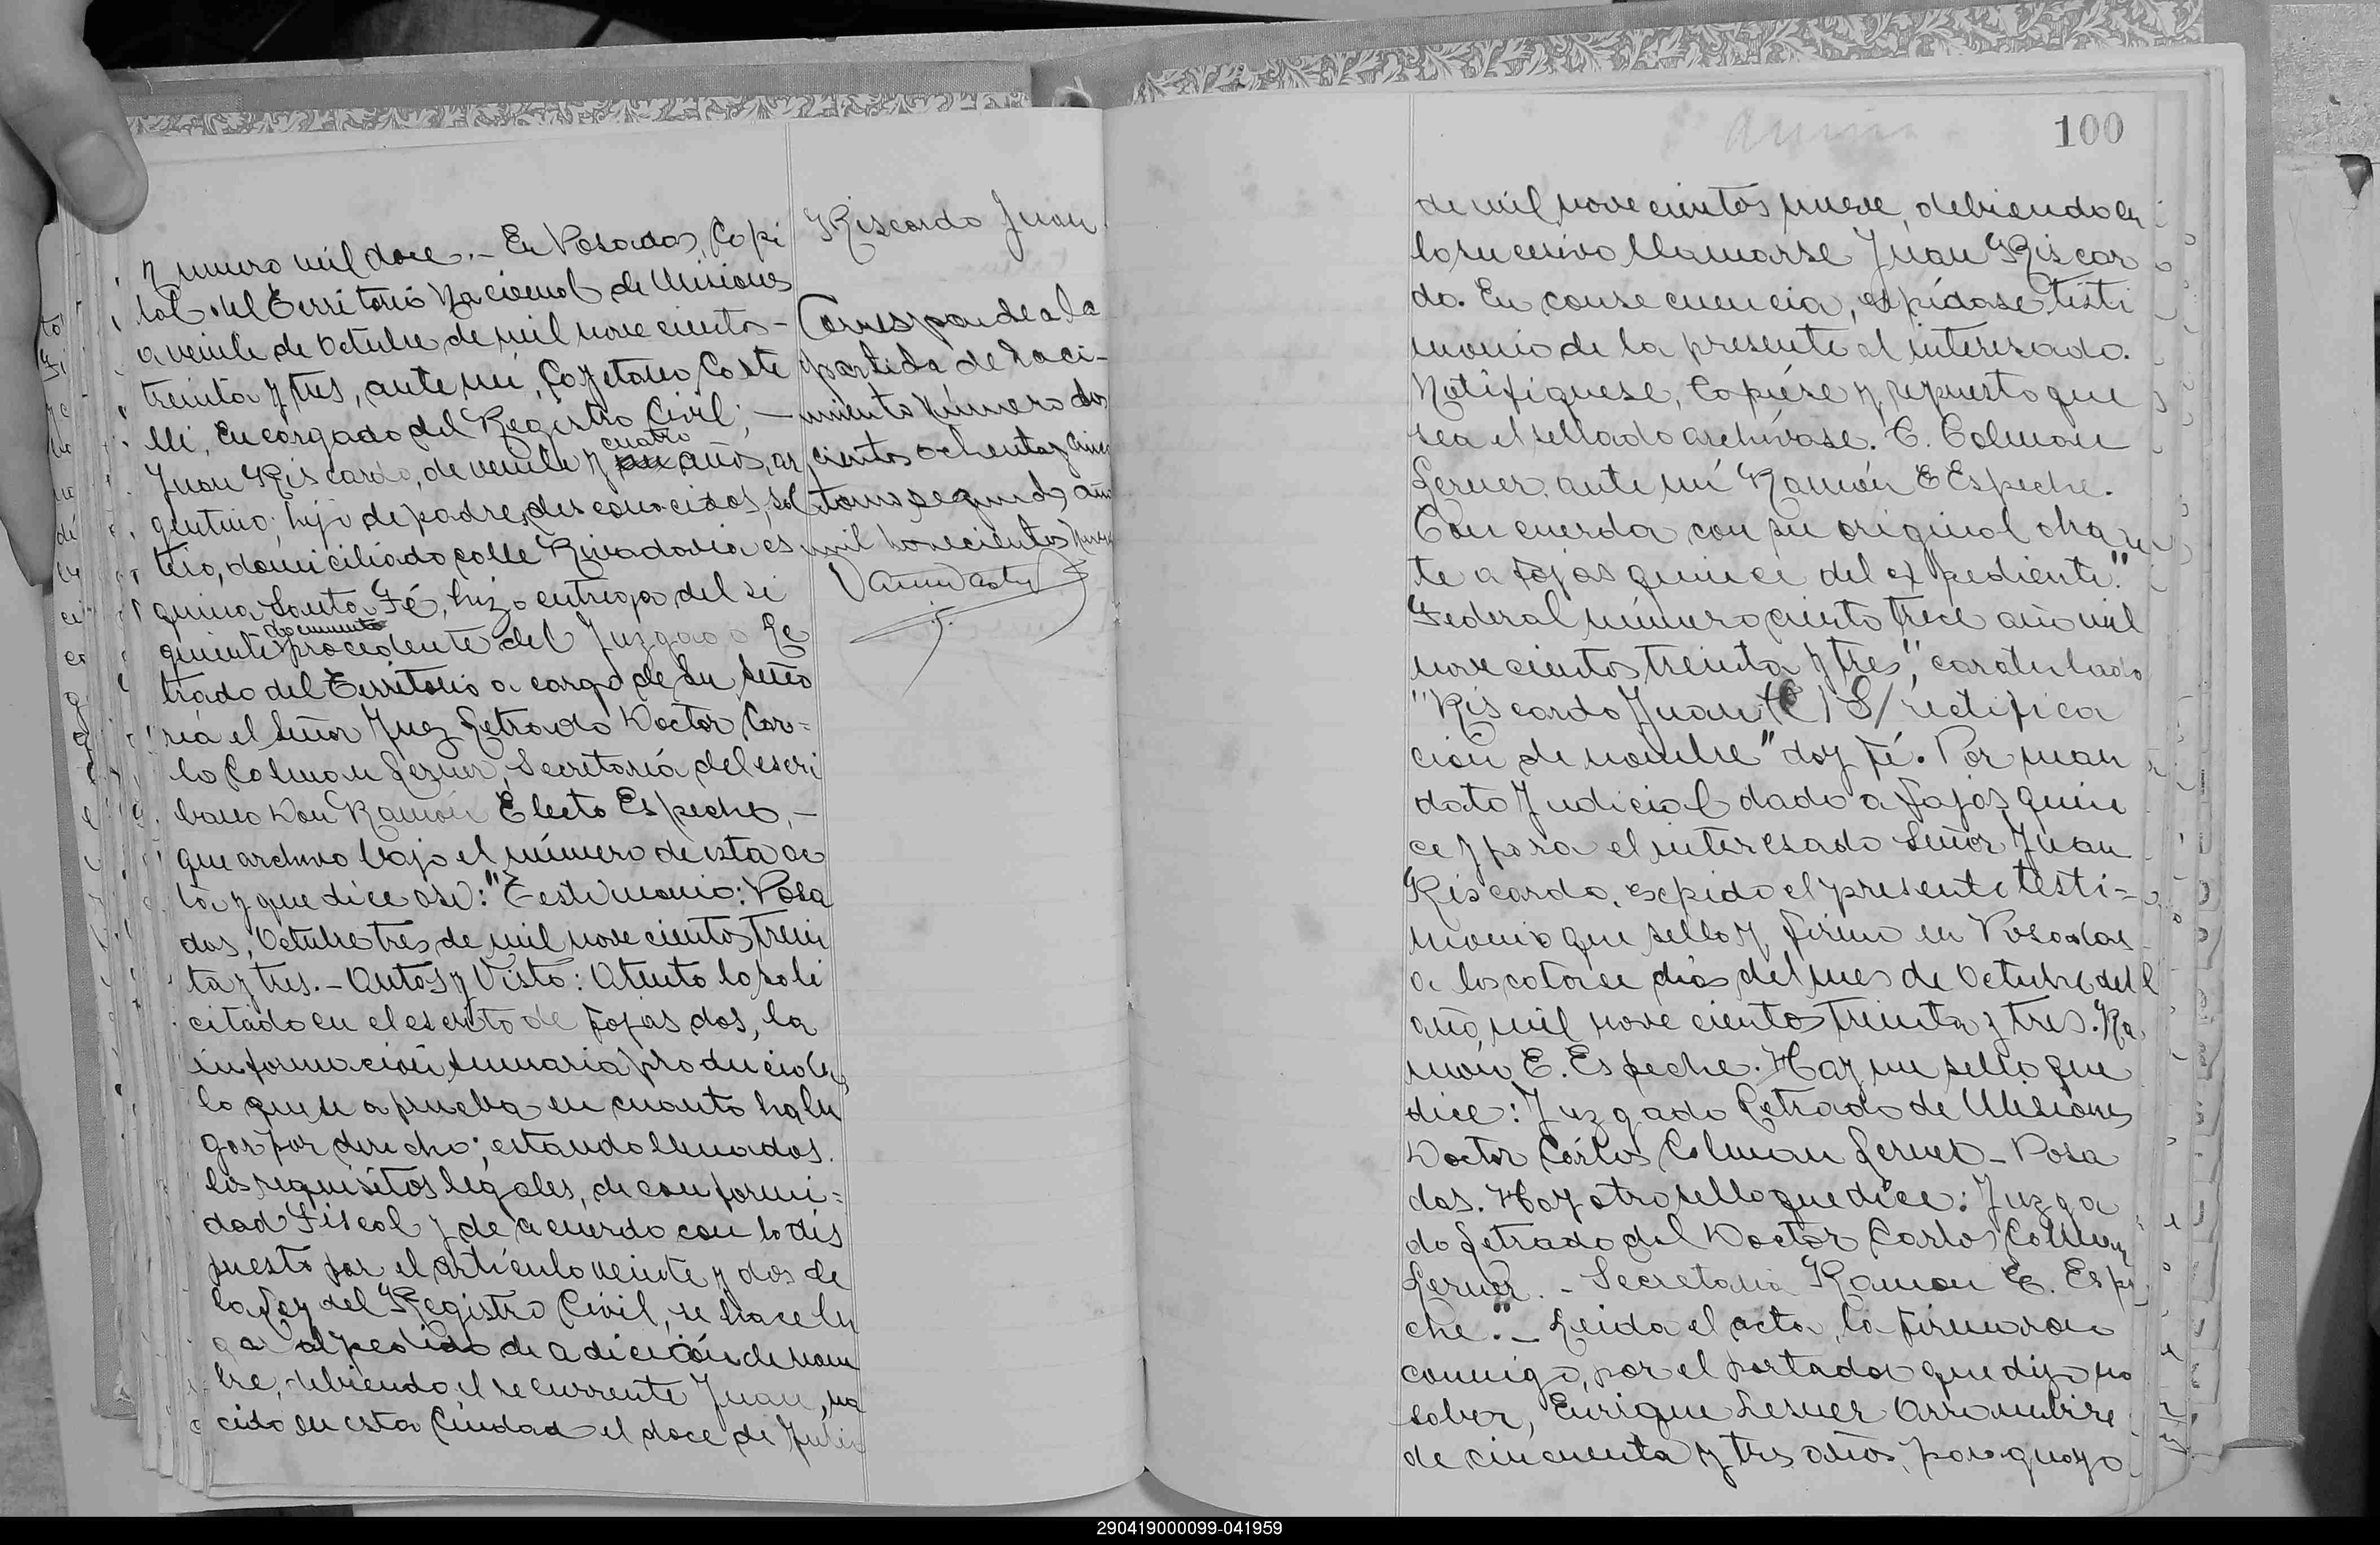 Número mil doce.- En Posadas, Capi
tal del Territorio Nacional de Misiones
a veinte de Octubre de mil nove cientos -
treinta y tres, ante mí, Cayetano Caste
lli, Encargado del Registro Civil; -
cuatro
Juan Riscardo, de veinte y años, ar
gentino, hijo de padres desconocidos, sol
tero, domiciliado calle Rivadavia es
quina Santa Fé, hizo entrega del si
documento
guiente procedente del Juzgado Le
trado del Territorio a cargo de Su Seño
ría el Señor Juez Letrado Doctor Car=
lo Colman Lerner, Secretaría del escri
bano Don Ramón Electo Espeche, -
que archivo bajo el número de esta ac
ta y que dice así: "Testimonio: Posa
das, Octubre tres de mil nove cientos trein
ta y tres. - Autos y Visto: Atento lo soli
citado en el escrito de fojas dos, la
información sumaria producida,
lo que se aprueba en cuanto ha lu
gar por derecho; estando llenados
los requisitos legales, de conformi=
dad Fiscal y de acuerdo con lo dis
puesto por el artículo veinte y dos de
la Ley del Registro Civil, se hace lu
gar al pedido de adición de nom
bre, debiendo el recurrente Juan, na
cido en esta Ciudad el doce de Julio
Riscardo Juan
Corresponde a la
partida de naci-
miento número dos
cientos ochenta y cinco
tomo segundo año
mil novecientos nueve
100
de mil nove cientos nueve, debiendo en
lo sucesivo llamarse Juan Riscar
do. En consecuencia, expídase testi
monio de la presente al interesado.
Notifíquese, Copiése y repuesto que
sea el sellado archívase. C. Colman
Lerner, ante mí Ramón E Espeche.
Concuerda con su original obran
te a fojas quince del expediente."
Federal número ciento trece año mil
nove cientos treinta y tres", caratulado
"Riscardo Juan (C) S/ rectifica
ción de nombre" doy fé. Por man
dato Judicial dado a fojas quin
ce y para el interesado Señor Juan
Riscardo, expido el presente testi=
monio que sello y firmo en Posadas
a los catorce días del mes de Octubre del
año mil nove cientos treinta y tres. Ra
món E. Espeche. Hay un sello que
dice: Juzgado Letrado de Misiones
Doctor Cárlos Colman Lerner - Posa
das. Hay otro sello que dice: Juzga
do Letrado del Doctor Carlos Colman
Lerner. - Secretaria Ramon E. Espe
che." - Leida el acta, la firmaron
conmigo, por el portador que dijo no
saber, Enrique Lesner
de cincuenta y tres años, paraguayo
290419000099-041959